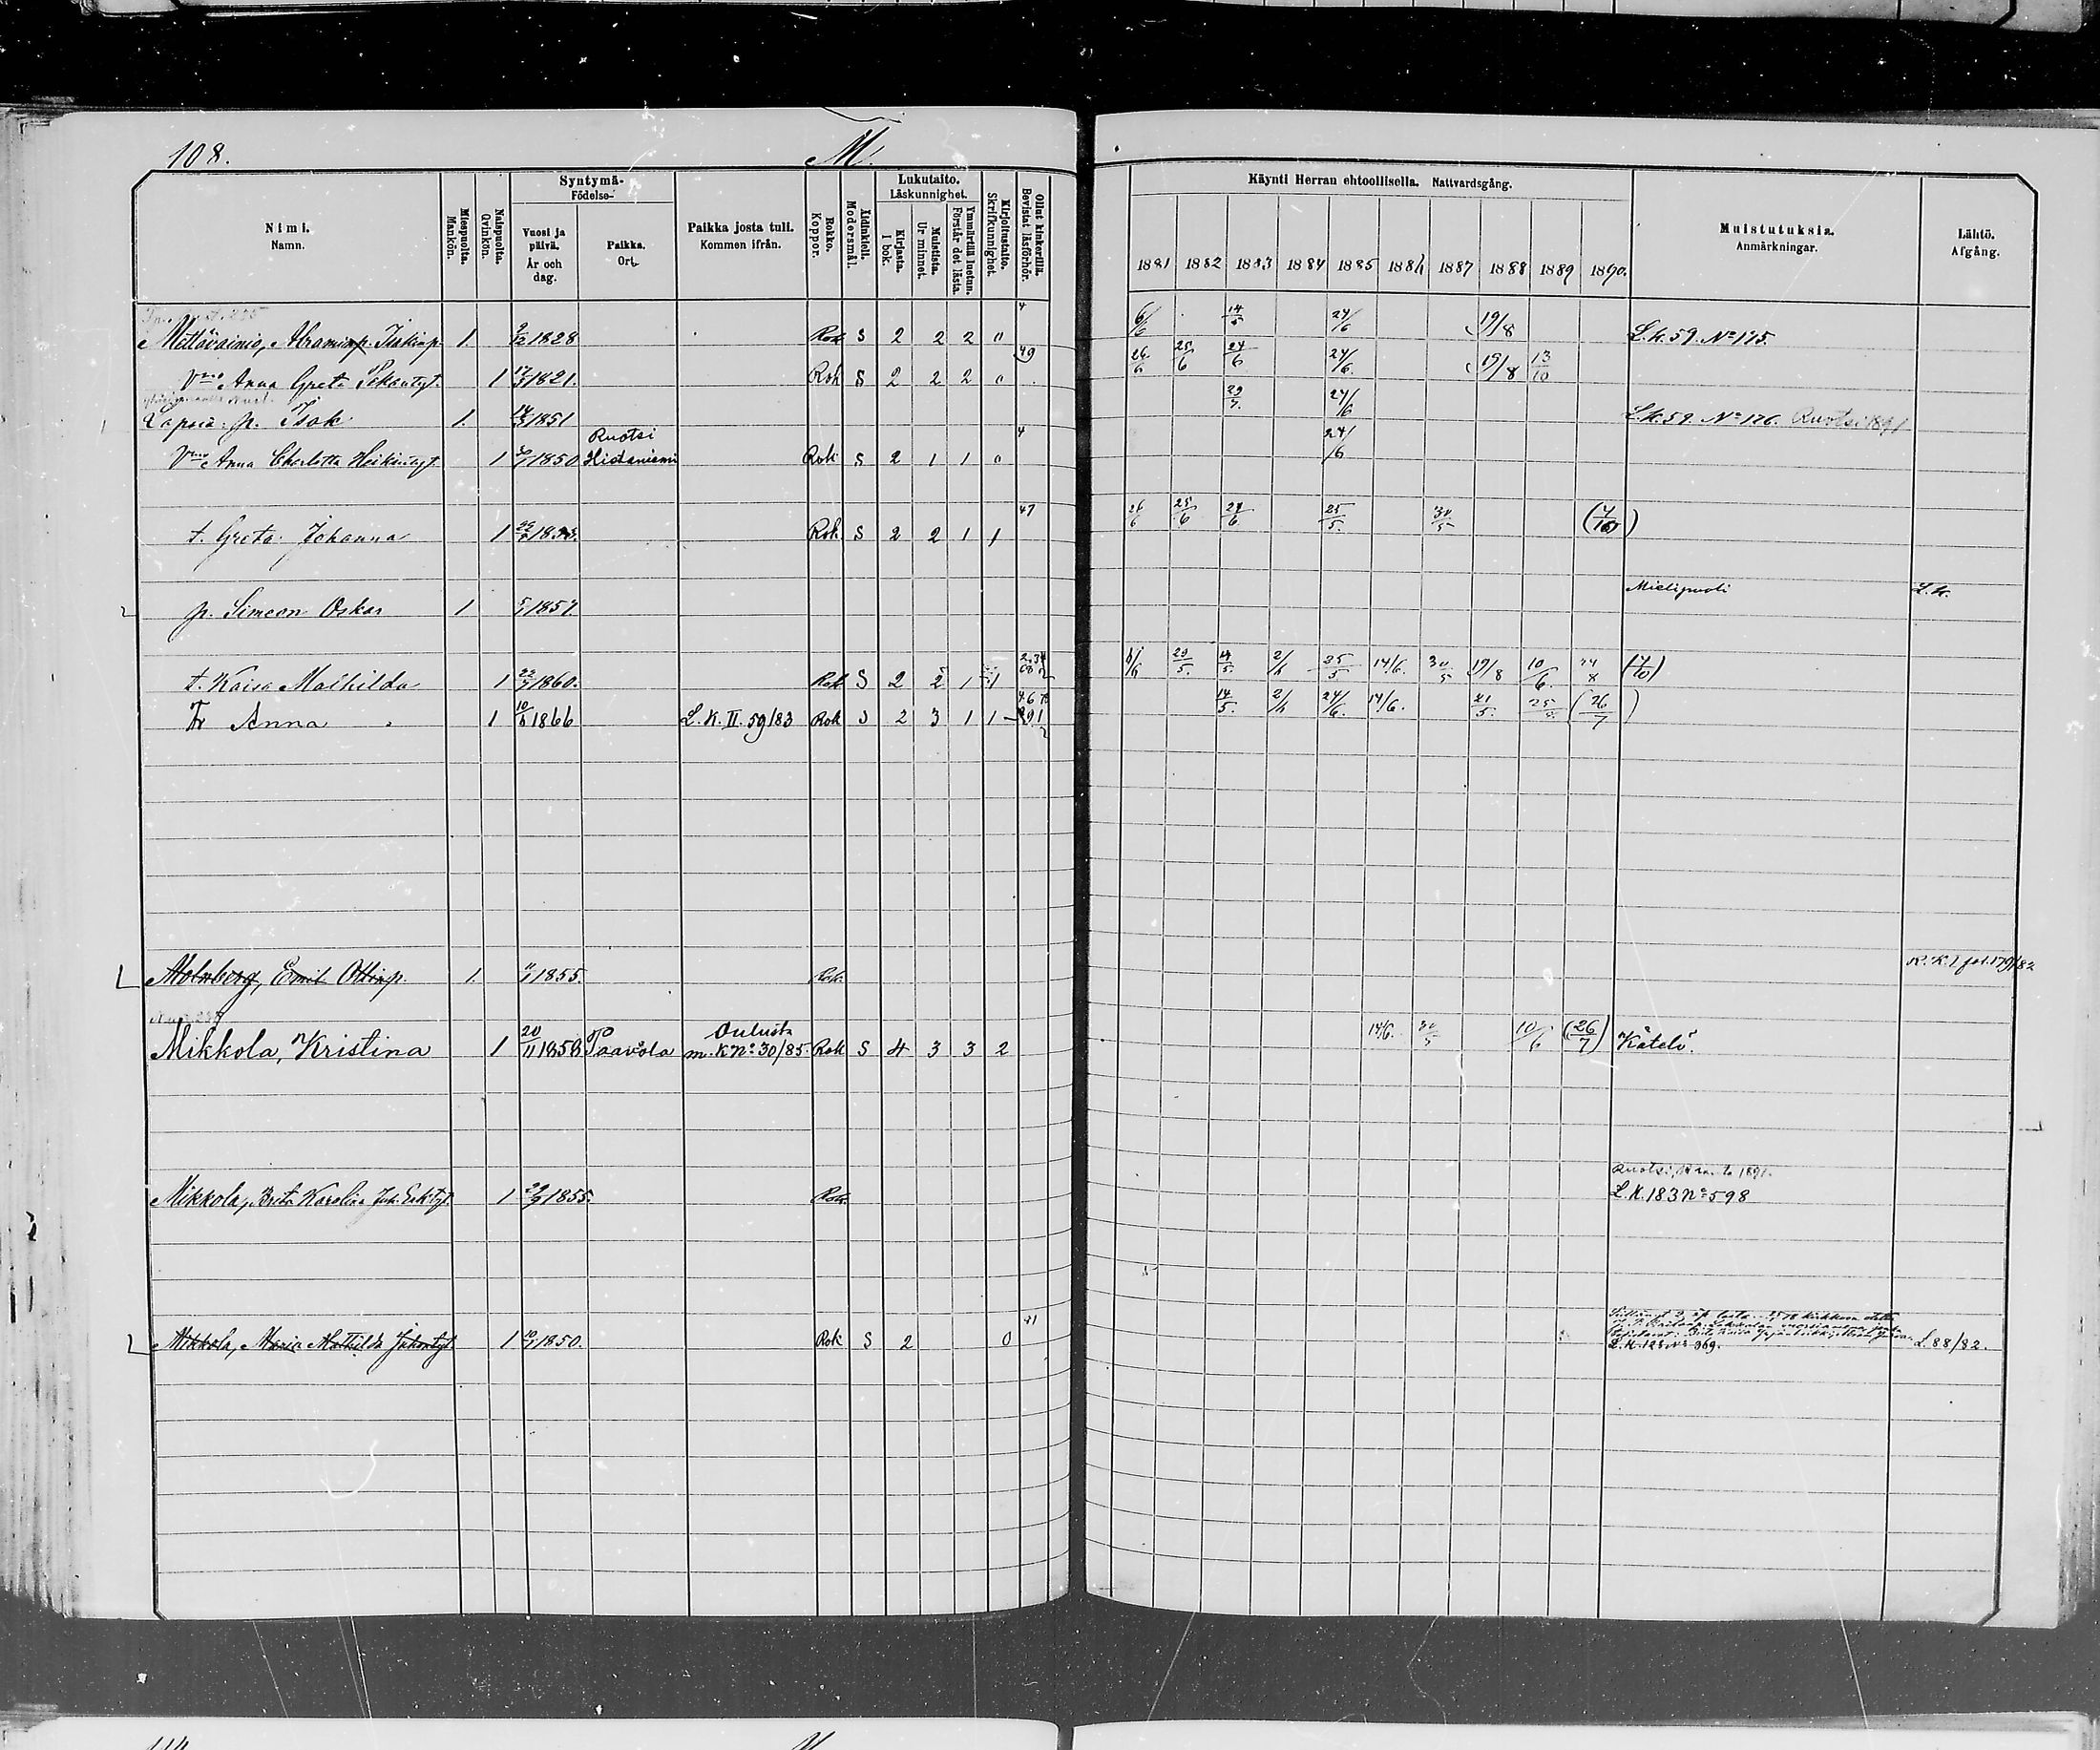 108.
M.
Nimi.
Namn.
Miespuolta.
Mankön.
Naispuolta.
Qvinkön.
Syntymä-
Födelse-
Vuosi ja päivä.
År och dag.
Paikka.
Ort.
Paikka josta tuli.
Kommen ifrån.
Rokko.
Koppor.
Äidinkieli.
Modersmål.
Lukutaito.
Läskunnighet.
Kirjasta.
I bok.
Muistista.
Ur minnet.
Ymmärtää luetun.
Förstår det lästa.
Kirjoitustaito.
Skrifkunnighet.
Ollut kinkerillä.
Bevistat läsförhör.
Käynti Herran ehtoollisella. Nattvardsgång.
1881 1882 1883 1884 1885 1886 1887 1888 1889 1890.
Muistutuksia.
Anmärkningar.
Lähtö.
Afgång.
4
Mettävainio, Abram Iisakinp. 1. 9/12 1828 Rok S 2 2 2 0 6/6 14/5 24/6 19/8 L.K. 59. No 175.
49
Vmo Anna Greta 1 17/3 1821. Rok S 2 2 2 0 26/6 25/6 24/6 24/6 19/8 13/10
Lapsia: p. Isak 1. 14/3 1851 29/7. 24/6 L.K. 59. No 176. Ruotsi 1891
Ruotsi
4
Vmo Anna Charlotta Heikintyt. 1 1850 Hidaniemi Rok S 2 1 1 0 24/6
47
t. Greta Johanna 1 Rok S 2 2 1 1 26/6 25/6 24/6 25/5. 30/5 (7/10)
p. Simeon Oskar 1 1857. Mielipuoli L.K.
t. Kaisa Mathilda 1 22/7 1860. Rok S 2 2 1 1 6/6 29/5. 14/5. 2/6 25/5 14/6. 30/5 19/8 10/6. 24/8 (7/10)
Tr Anna 1 1866 L.K. II. 59/83 Rok S 2 3 1 1 14/5. 2/6 24/6. 14/6. 21/5. 25/5. (26/7)
Molnberg, Emil Ottinp. 1. 1855. Rok. R.K. I fol. 179/82
Oulusta
Mikkola, Kristina 1 20/11 1858 Paavola m.k. No 30/85. Rok S 4 3 3 2 14/6. 30/5 10/6 (26/7) Kätelö.
Ruotsi 1891.
Mikkola, Brita Karolina Juh. Erk.tyt. 1 29/9 1855. Rok. L.K. 183 No 598
41
Mikkola, Maria Mathilda Juhontyt. 1 1850. Rok S 2 0 L.K. 128 No 369. L. 88/82.